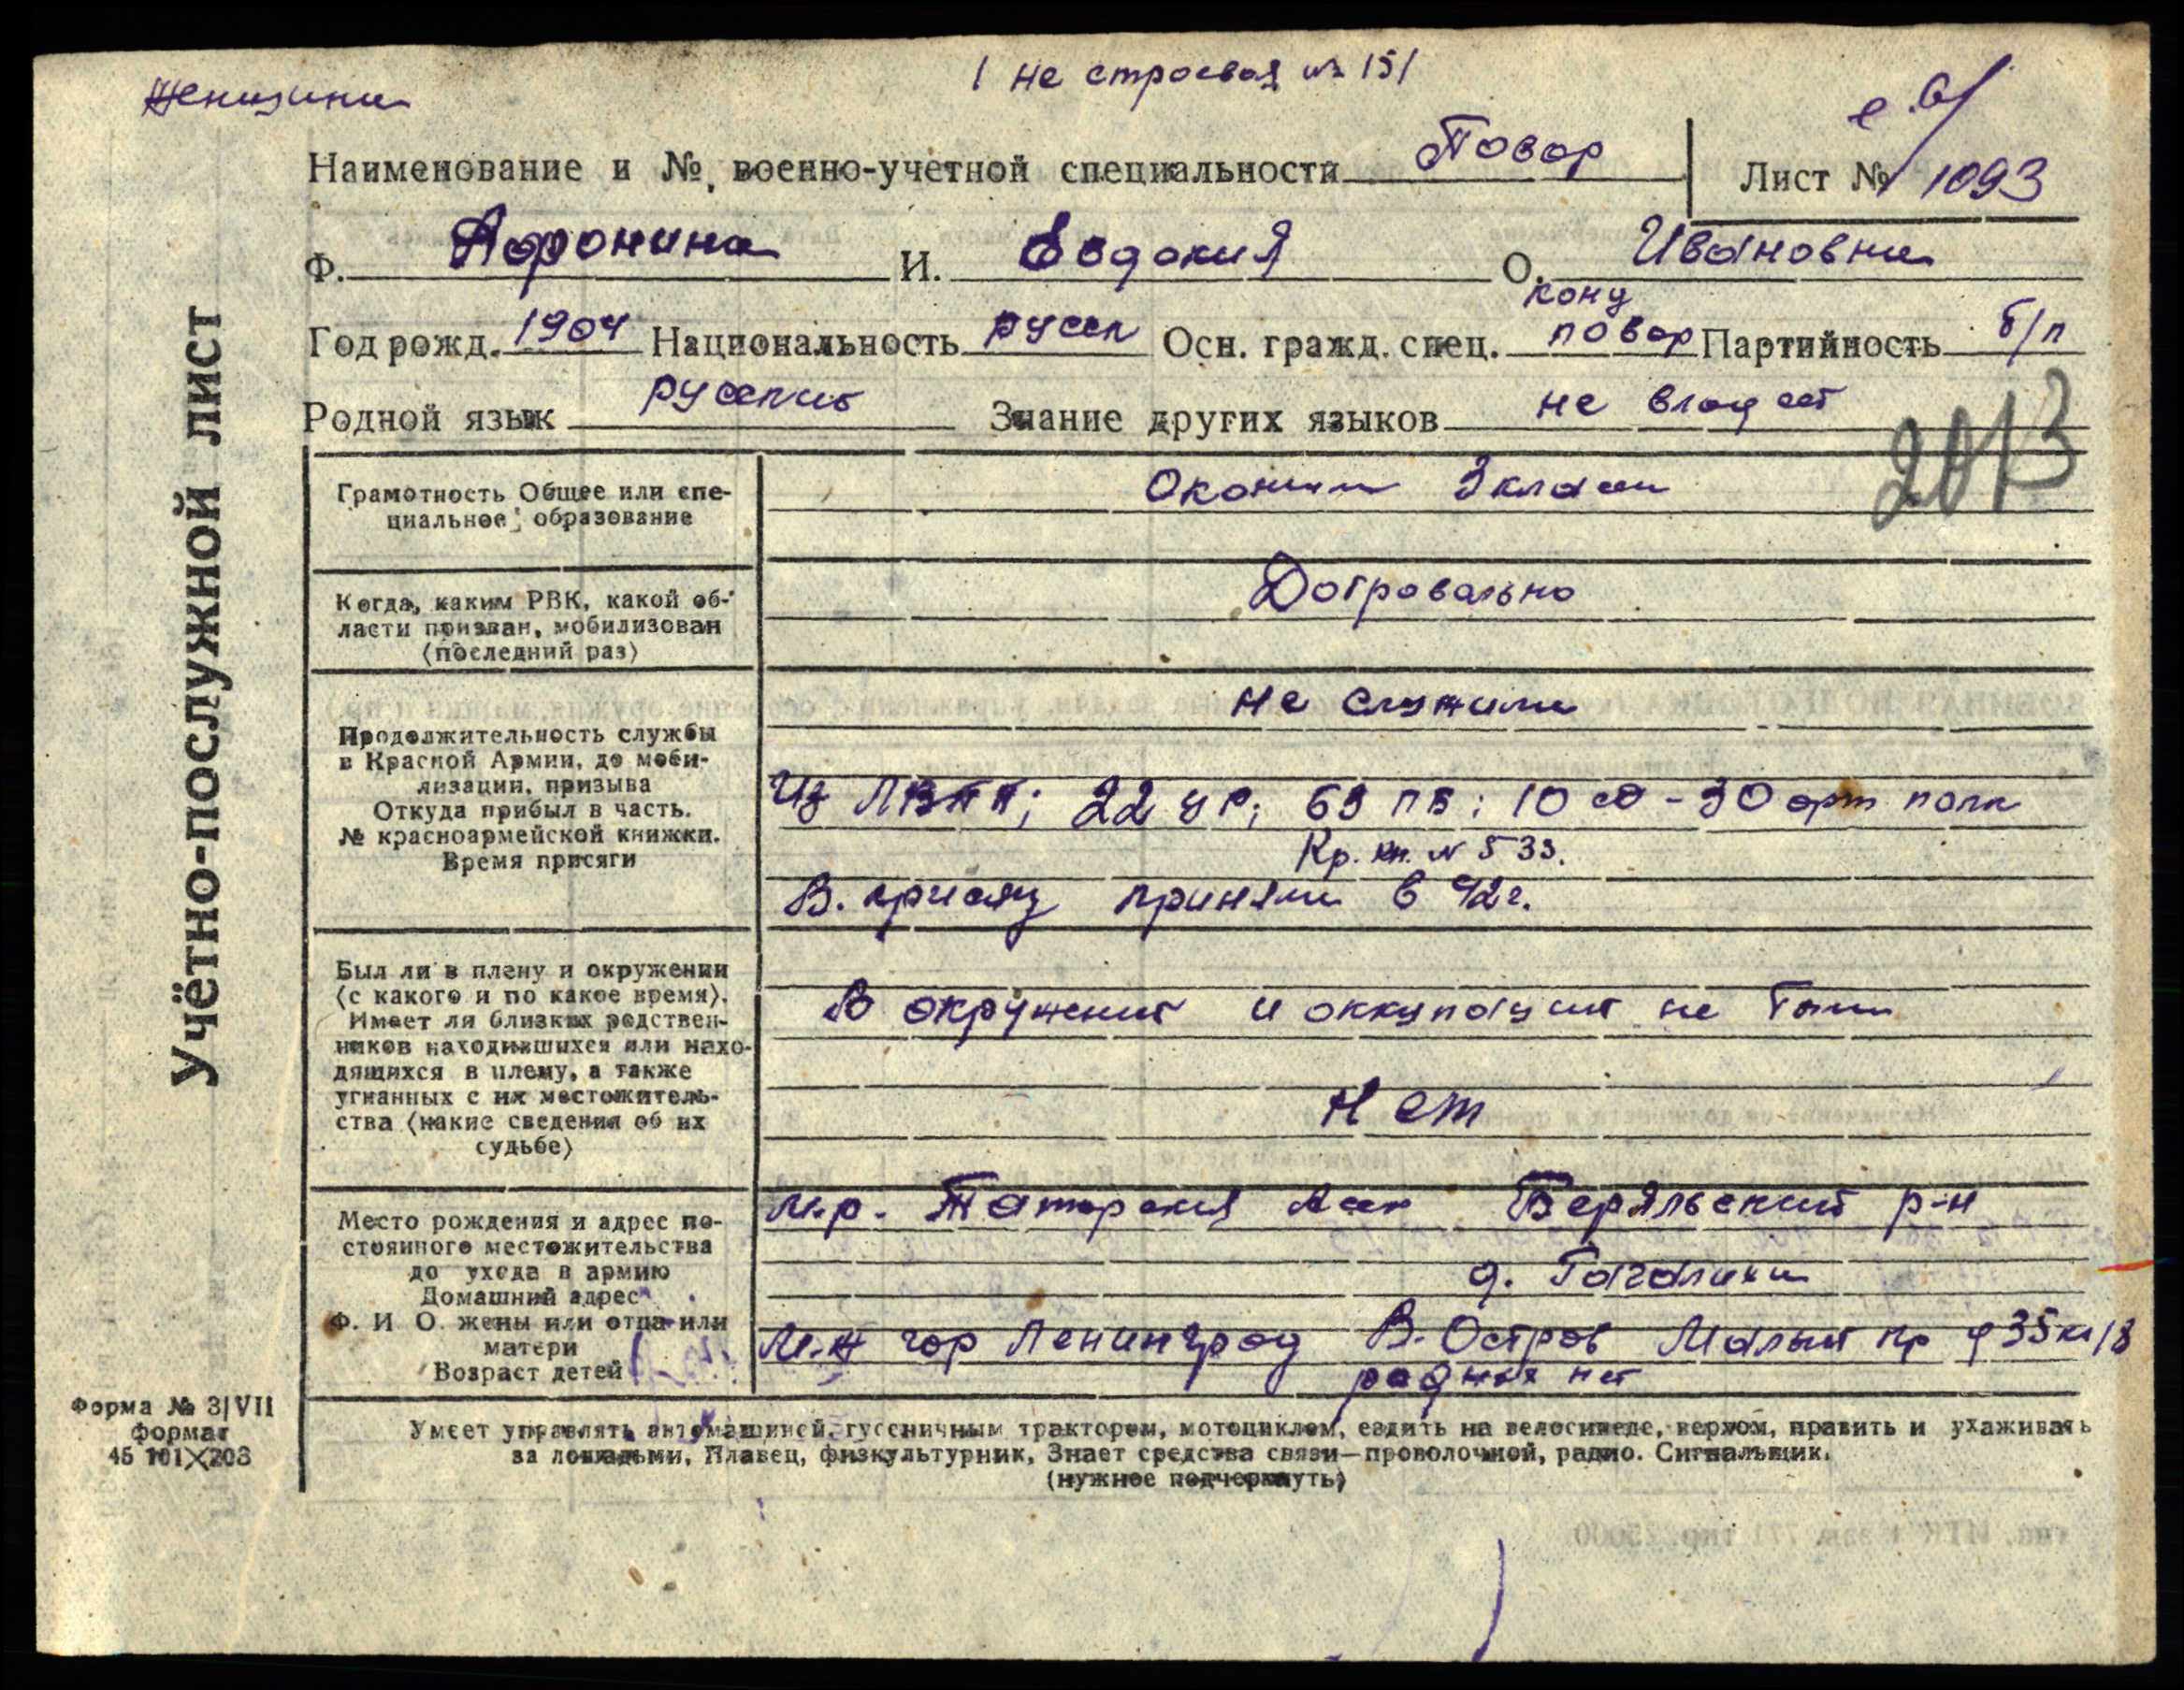 Женщина
/ не строевая из 15/
Наименование и № военно-учетной специальности Повар
Лист № 1093
Ф. Афонина И. Евдокия О. Ивановна
Год рожд. 1904 Национальность русск Осн. гражд. спец. конд повар Партийность б/п
Родной язык русский Знание других языков не влад еет
2013
Учётно-послужной лист
Грамотность Общее или спе-
циальное образование
Окончила 3 класса
Когда, каким РВК, какой об-
ласти призван, мобилизован
(последний раз)
Добровольно
Продолжительность службы
в Красной Армии, до моби-
лизации, призыва
Откуда прибыл в часть.
№ красноармейской книжки.
Время присяги
не служила
Из ЛВПП; 22 УР; 63 ПБ; 10 сд - 30 арт полк
Кр. кн. N 533.
В. присягу приняла в 42 г.
Был ли в плену и окружении
(с какого и по какое время).
Имеет ли близких родствен-
ников находившихся или нахо-
дящихся в плену, а также
угнанных с их местожитель-
ства (какие сведения об их
судьбе)
В окружений и оккупаций не была
Нет
Место рождения и адрес по-
стоянного местожительства
до ухода в армию
Домашний адрес
Ф. И О. жены или отца или
матери
Возраст детей
м.р. Татарская Асср р-н
д.
М.ж гор Ленинград В. Остров Малый пр д 35 кв 18
родных нет
Форма № 3/VII
формат
45 101X203
Умеет управлять автомашиной, гусеничным трактором, мотоциклом, ездить на велосипеде, верхом, править и ухаживать
за лошадьми, Плавец, физкультурник, Знает средства связи—проволочной, радио. Сигнальщик.
(нужное подчеркнуть)